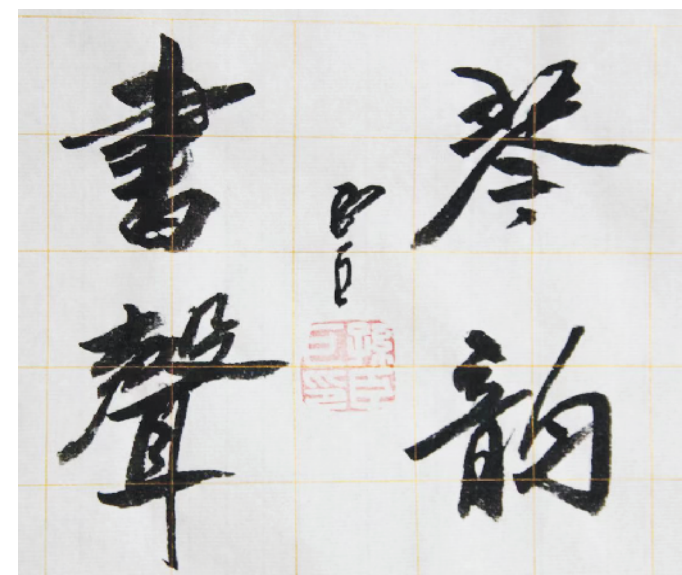 琴韵
書聲